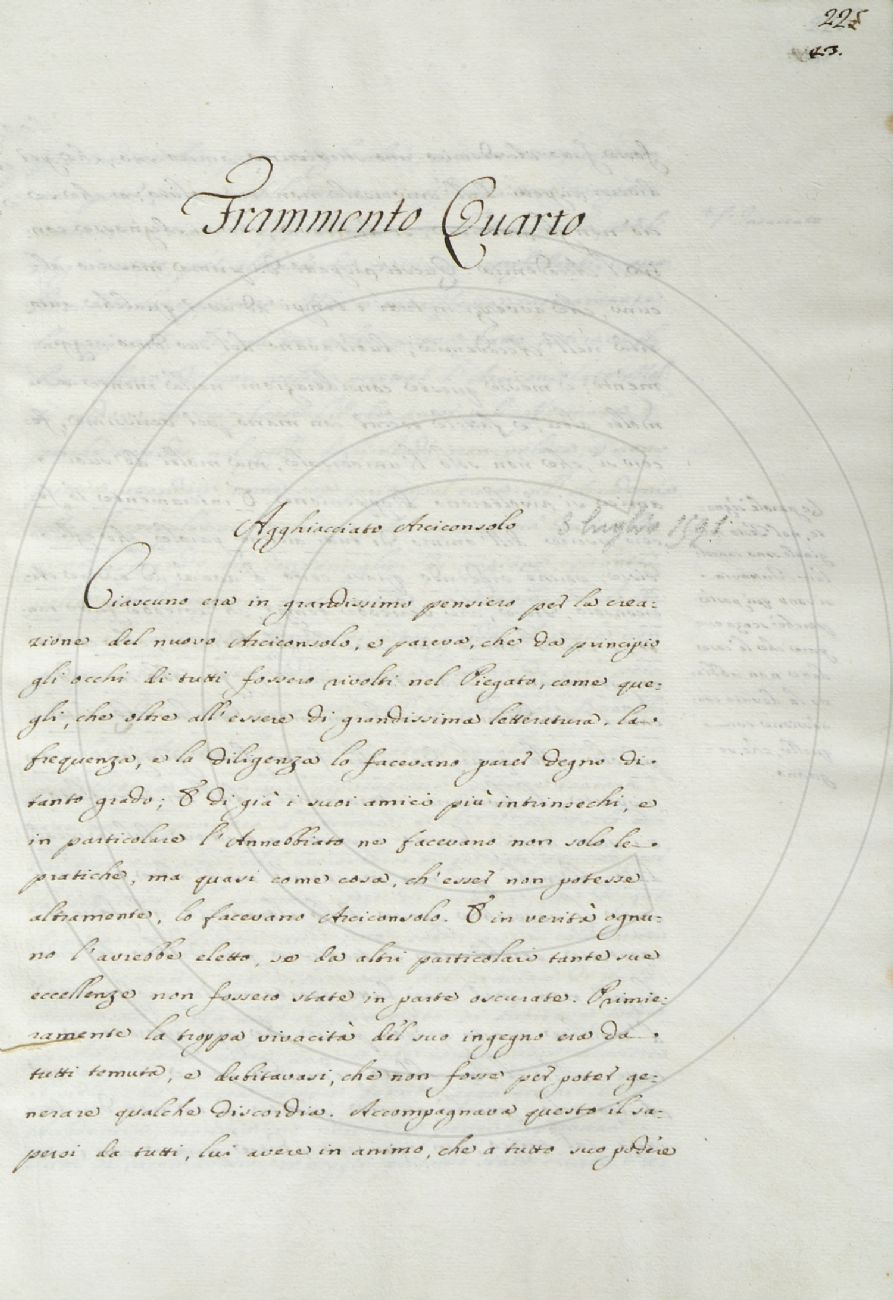 225
23.
Frammento Quarto
Agghiacciato Arciconsolo 8 luglio 1591
Ciascuno era in grandissimo pensiero per la crea:
zione del nuovo Arciconsolo, e pareva, che da principio
gli occhi di tutti fossero rivolti nel Piegato, come que:
gli, che oltre all'essere di grandissima letteratura, la
frequenza, e la diligenza lo facevano parer degno di
tanto grado; & di già i suoi amici più intrinsechi, e
in particolare l'Annebbiato ne facevano non solo le
pratiche, ma quasi come cosa, ch'esser non potesse
altramente, lo facevano Arciconsolo. & in verità ognu:
no l'avrebbe eletto, se da altri particolari tante sue
eccellenze non fossero state in parte oscurate. Primie:
ramente la troppa vivacità del suo ingegno era da
tutti temuta, e dubitavasi, che non fosse per poter ge:
nerare qualche discordia. Accompagnava questo il sa:
persi da tutti, lui avere in animo, che a tutto suo podere